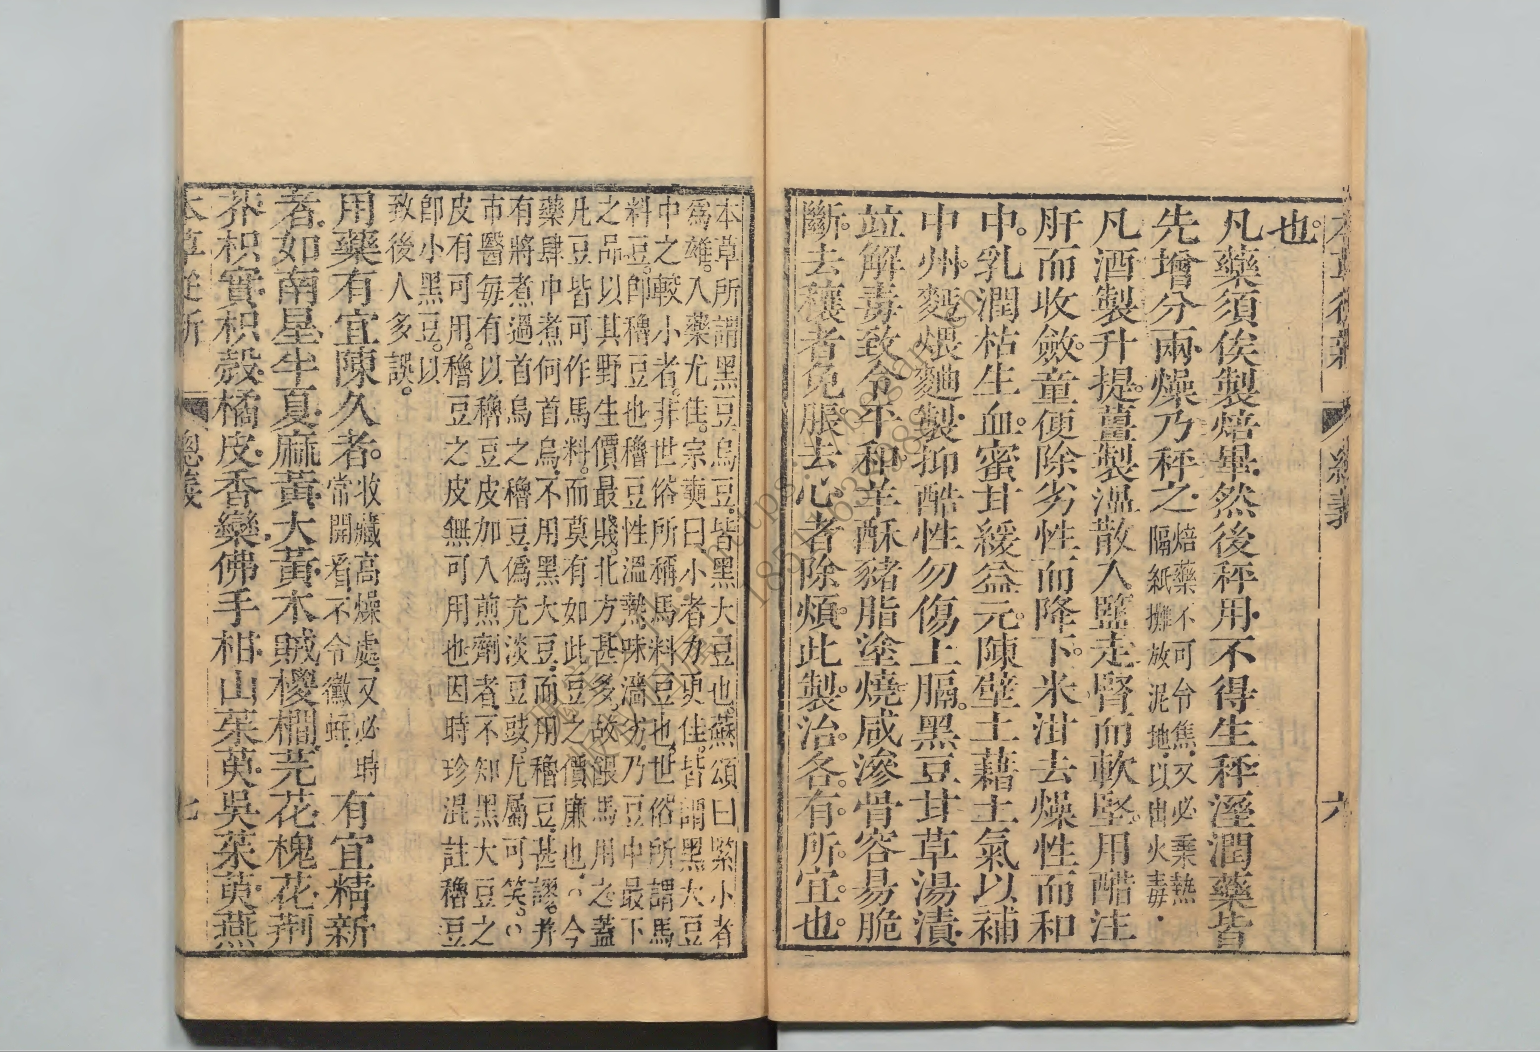 本草從新
總義
六
也。
凡藥須俟製焙畢、然後秤用、不得生秤、溼潤藥皆
先增分兩、燥乃秤之、焙藥不可令焦、又必乘熱
隔紙攤放泥地、以出火毒、
凡酒製升提。薑製溫散。入鹽走腎而軟堅。用醋注
肝而收斂。童便除劣性而降下。米泔去燥性而和
中。乳潤枯生血。蜜甘緩益元。陳壁土藉土氣以補
中州。麵煨麯製、抑酷性勿傷上膈。黑豆甘草湯漬、
並解毒致令平和。羊酥豬脂塗燒、咸滲骨容易脆
斷。去穰者免脹。去心者除煩。此製治。各有所宜也。
本草所謂黑豆烏豆、皆黑大豆也。蘇頌曰、緊小者
為雄。入藥尤佳。宗奭曰、小者力更佳。皆謂黑大豆
中之較小者。非世俗所稱馬料豆也、世俗所謂馬
料豆。卽穭豆也、穭豆性溫熱、味濇劣、乃豆中最下
之品、以其野生價最賤。北方甚多、故餵馬用之、蓋
凡豆皆可作馬料。而莫有如此豆之價廉也。今
藥肆中煮何首烏、不用黑大豆、而用穭豆、甚謬。并
有將煮過首烏之穭豆、偽充淡豆豉。尤屬可笑。
市醫每有以穭豆皮加入煎劑者、不知黑大豆之
皮有可用。穭豆之皮無可用也、因時珍混註穭豆
卽小黑豆。以
致後人多誤。
用藥有宜陳久者。收藏高燥處、又必時
常開看、不令黴蛀、有宜精新
者、如南星半夏麻黃大黃木賊椶櫚芫花槐花荊
芥枳實枳殼橘皮香欒佛手柑山茱萸吳茱萸燕
本草從新
總義
七